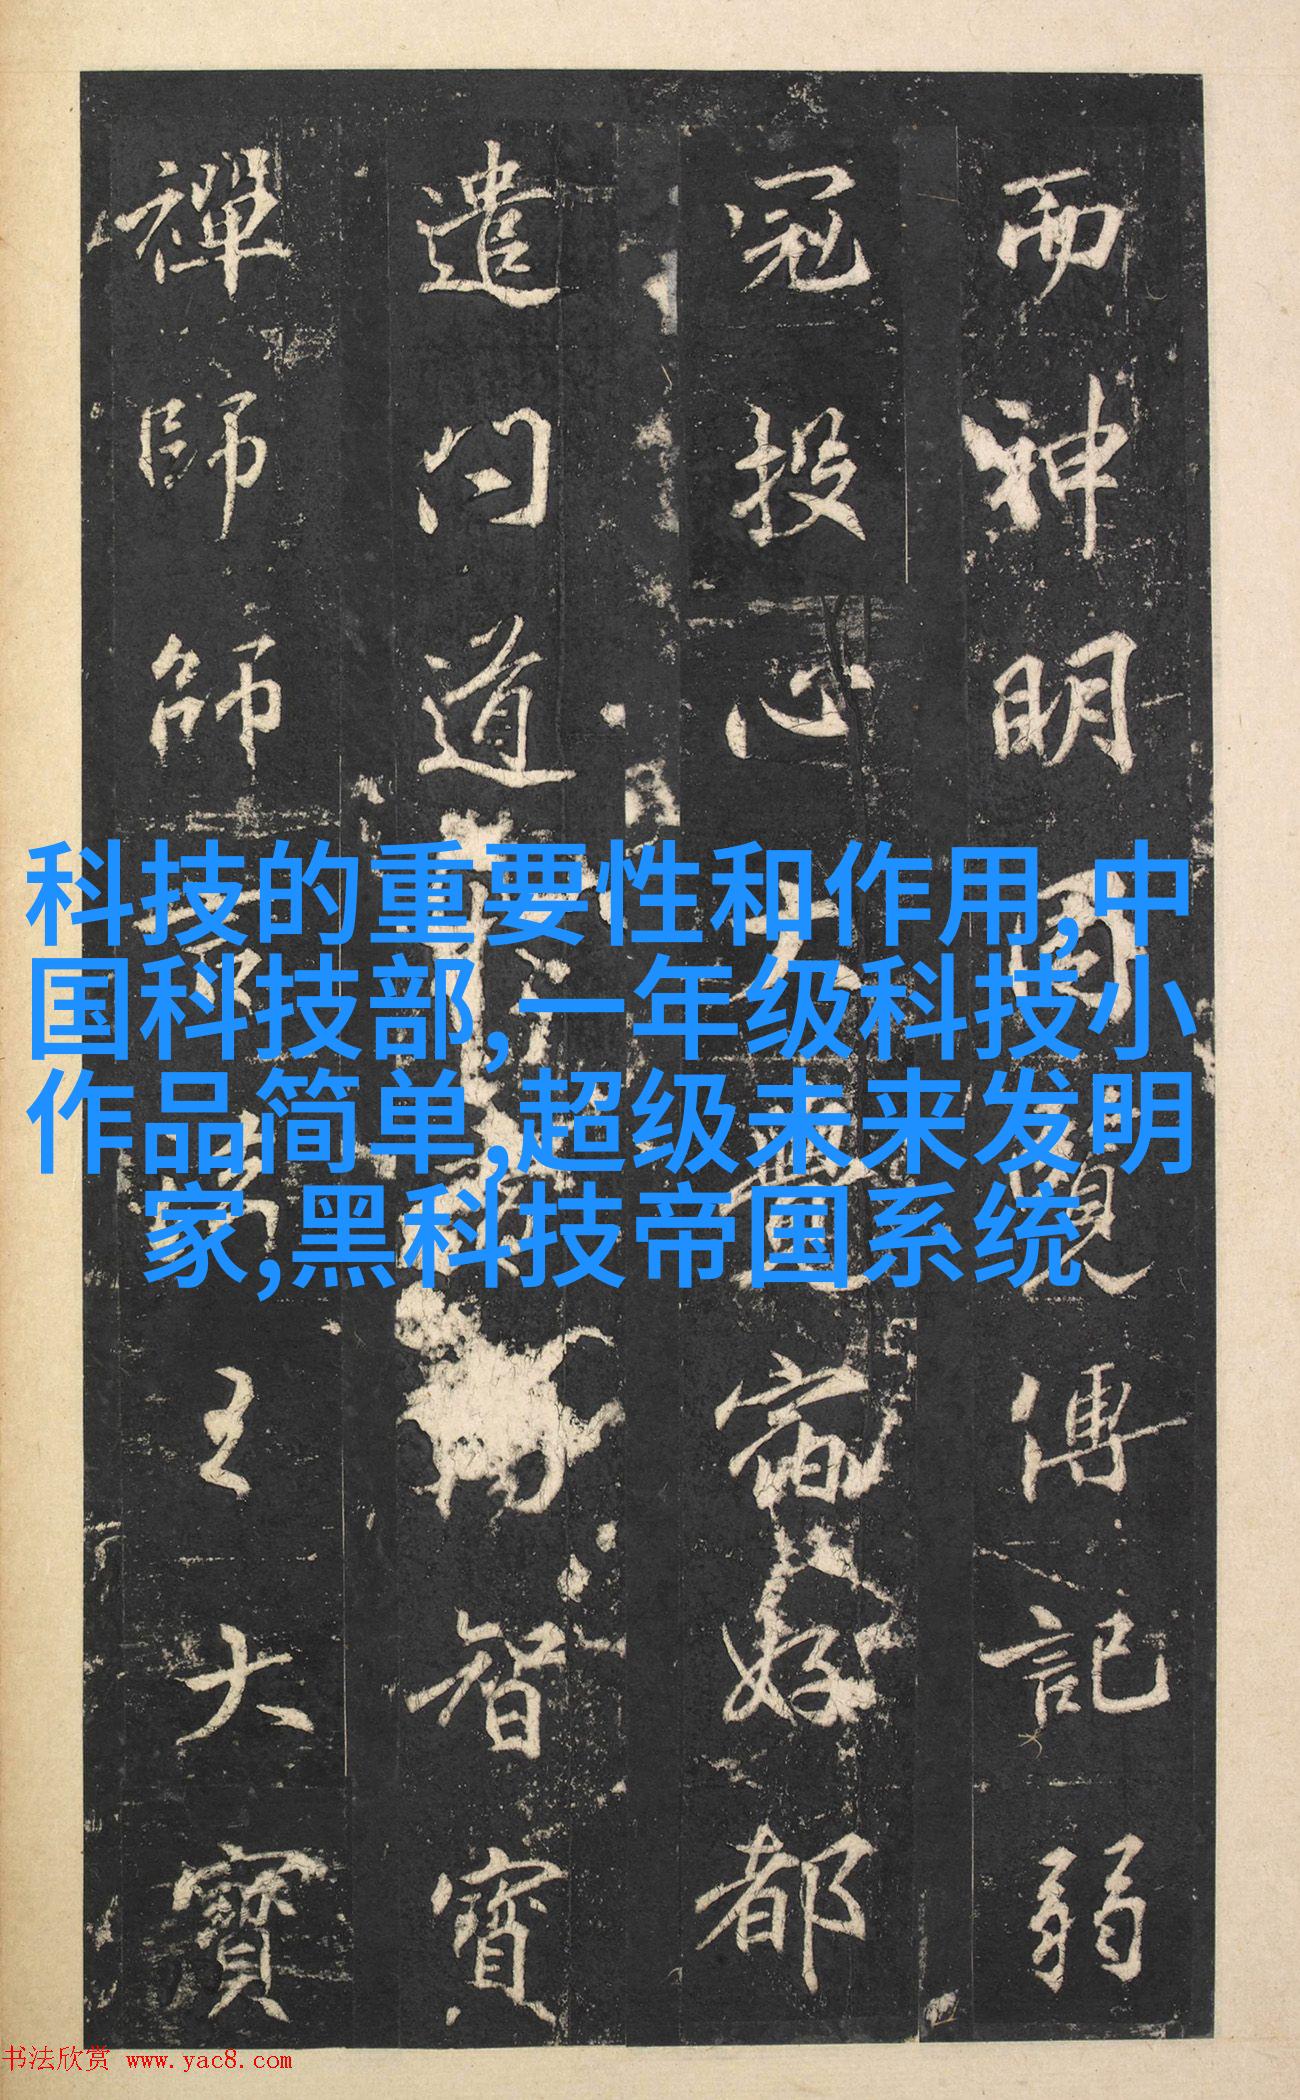 科技的重要性和作用,中
国科技部,一年级科技小
作品简单,超级未来发明
家,黑科技帝国系统
而神明傳記弱
冠投心大宿好都
遣問道智寶
禪師師大寶
书法欣赏 www.yac8.com